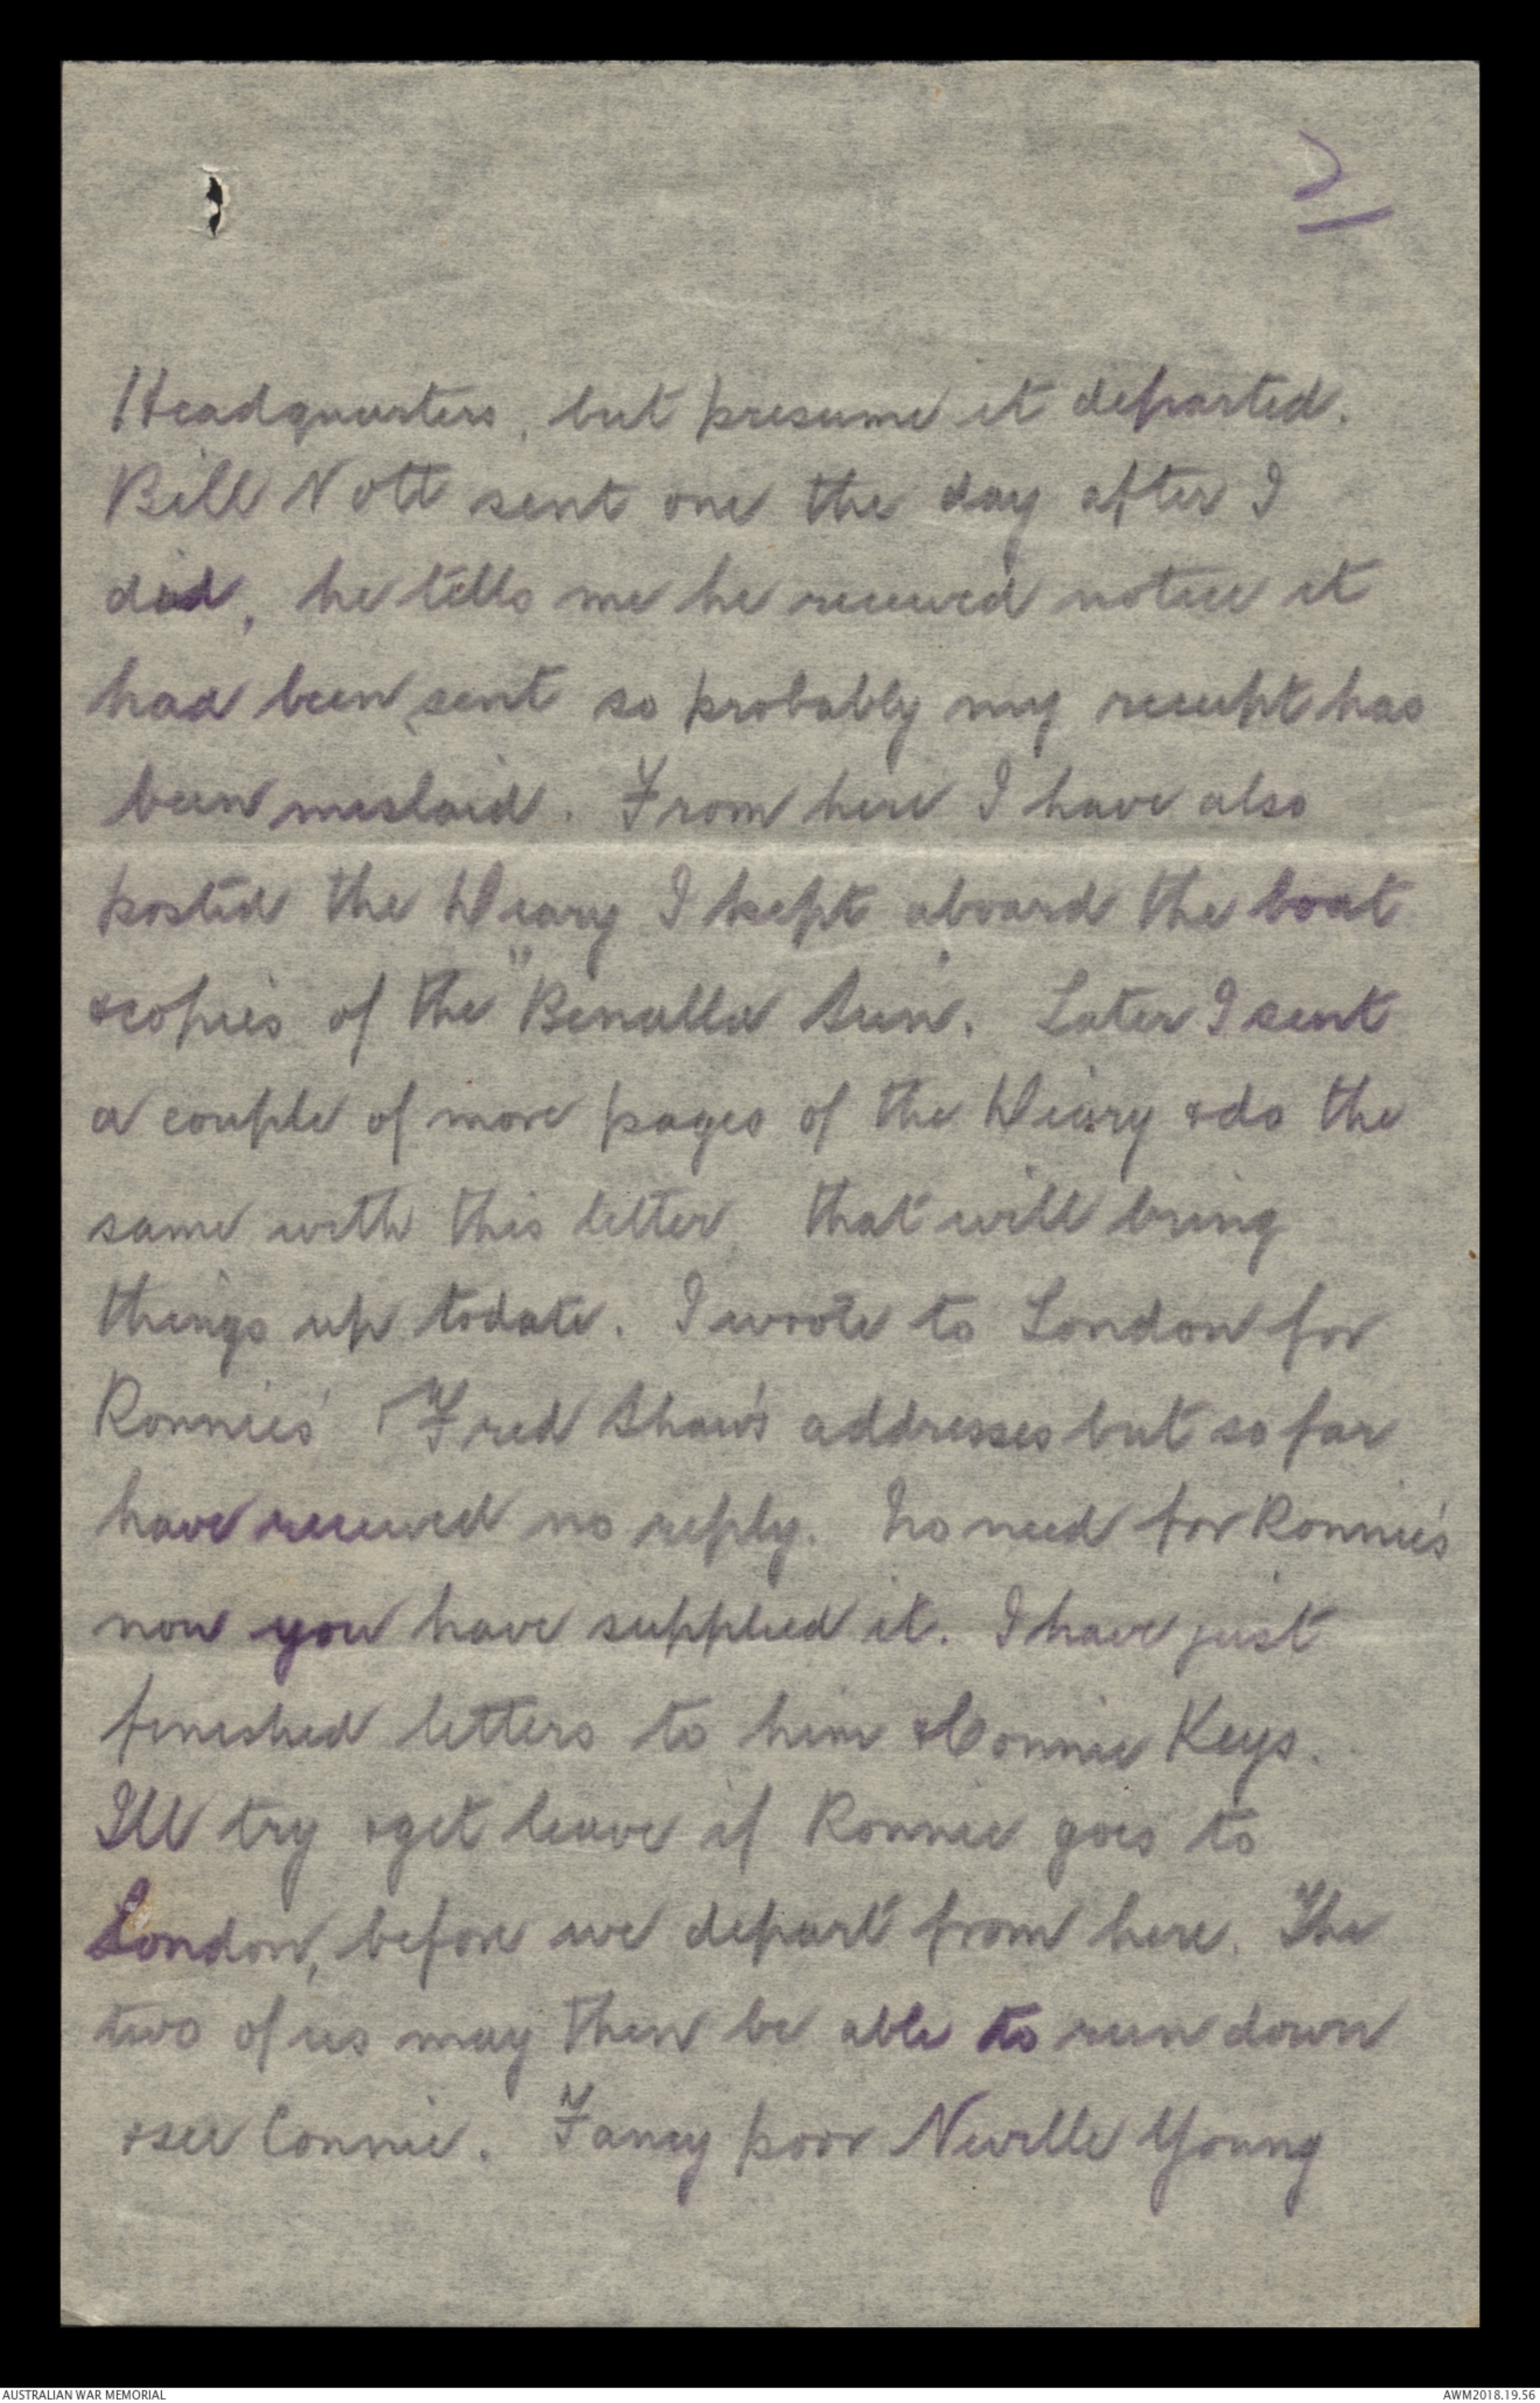 2
Headquarters, but presume it departed.
Bill Nott sent one the day after I
did, he tells me he received notice it
had been sent so probably my receipt has
been mislaid. From here I have also
posted the Diary I kept aboard the boat
& copies of the "Benalla Sun". Later I sent
a couple of more pages of the Diary & do the
same with this letter that will bring
things up todate. I wrote to London for
Ronnies' Fred Shaw's addresses but so far
have received no reply. No need for Ronnie's
now you have supplied it. I have just
finished letters to him & Connie Keys.
I'll try & get leave if Ronnie goes to
London, before we depart from here. The
two of us may then be able to run down
& see Connie. Fancy poor Neville Young
AUSTRALIAN WAR MEMORIAL
AWM2018.19.56